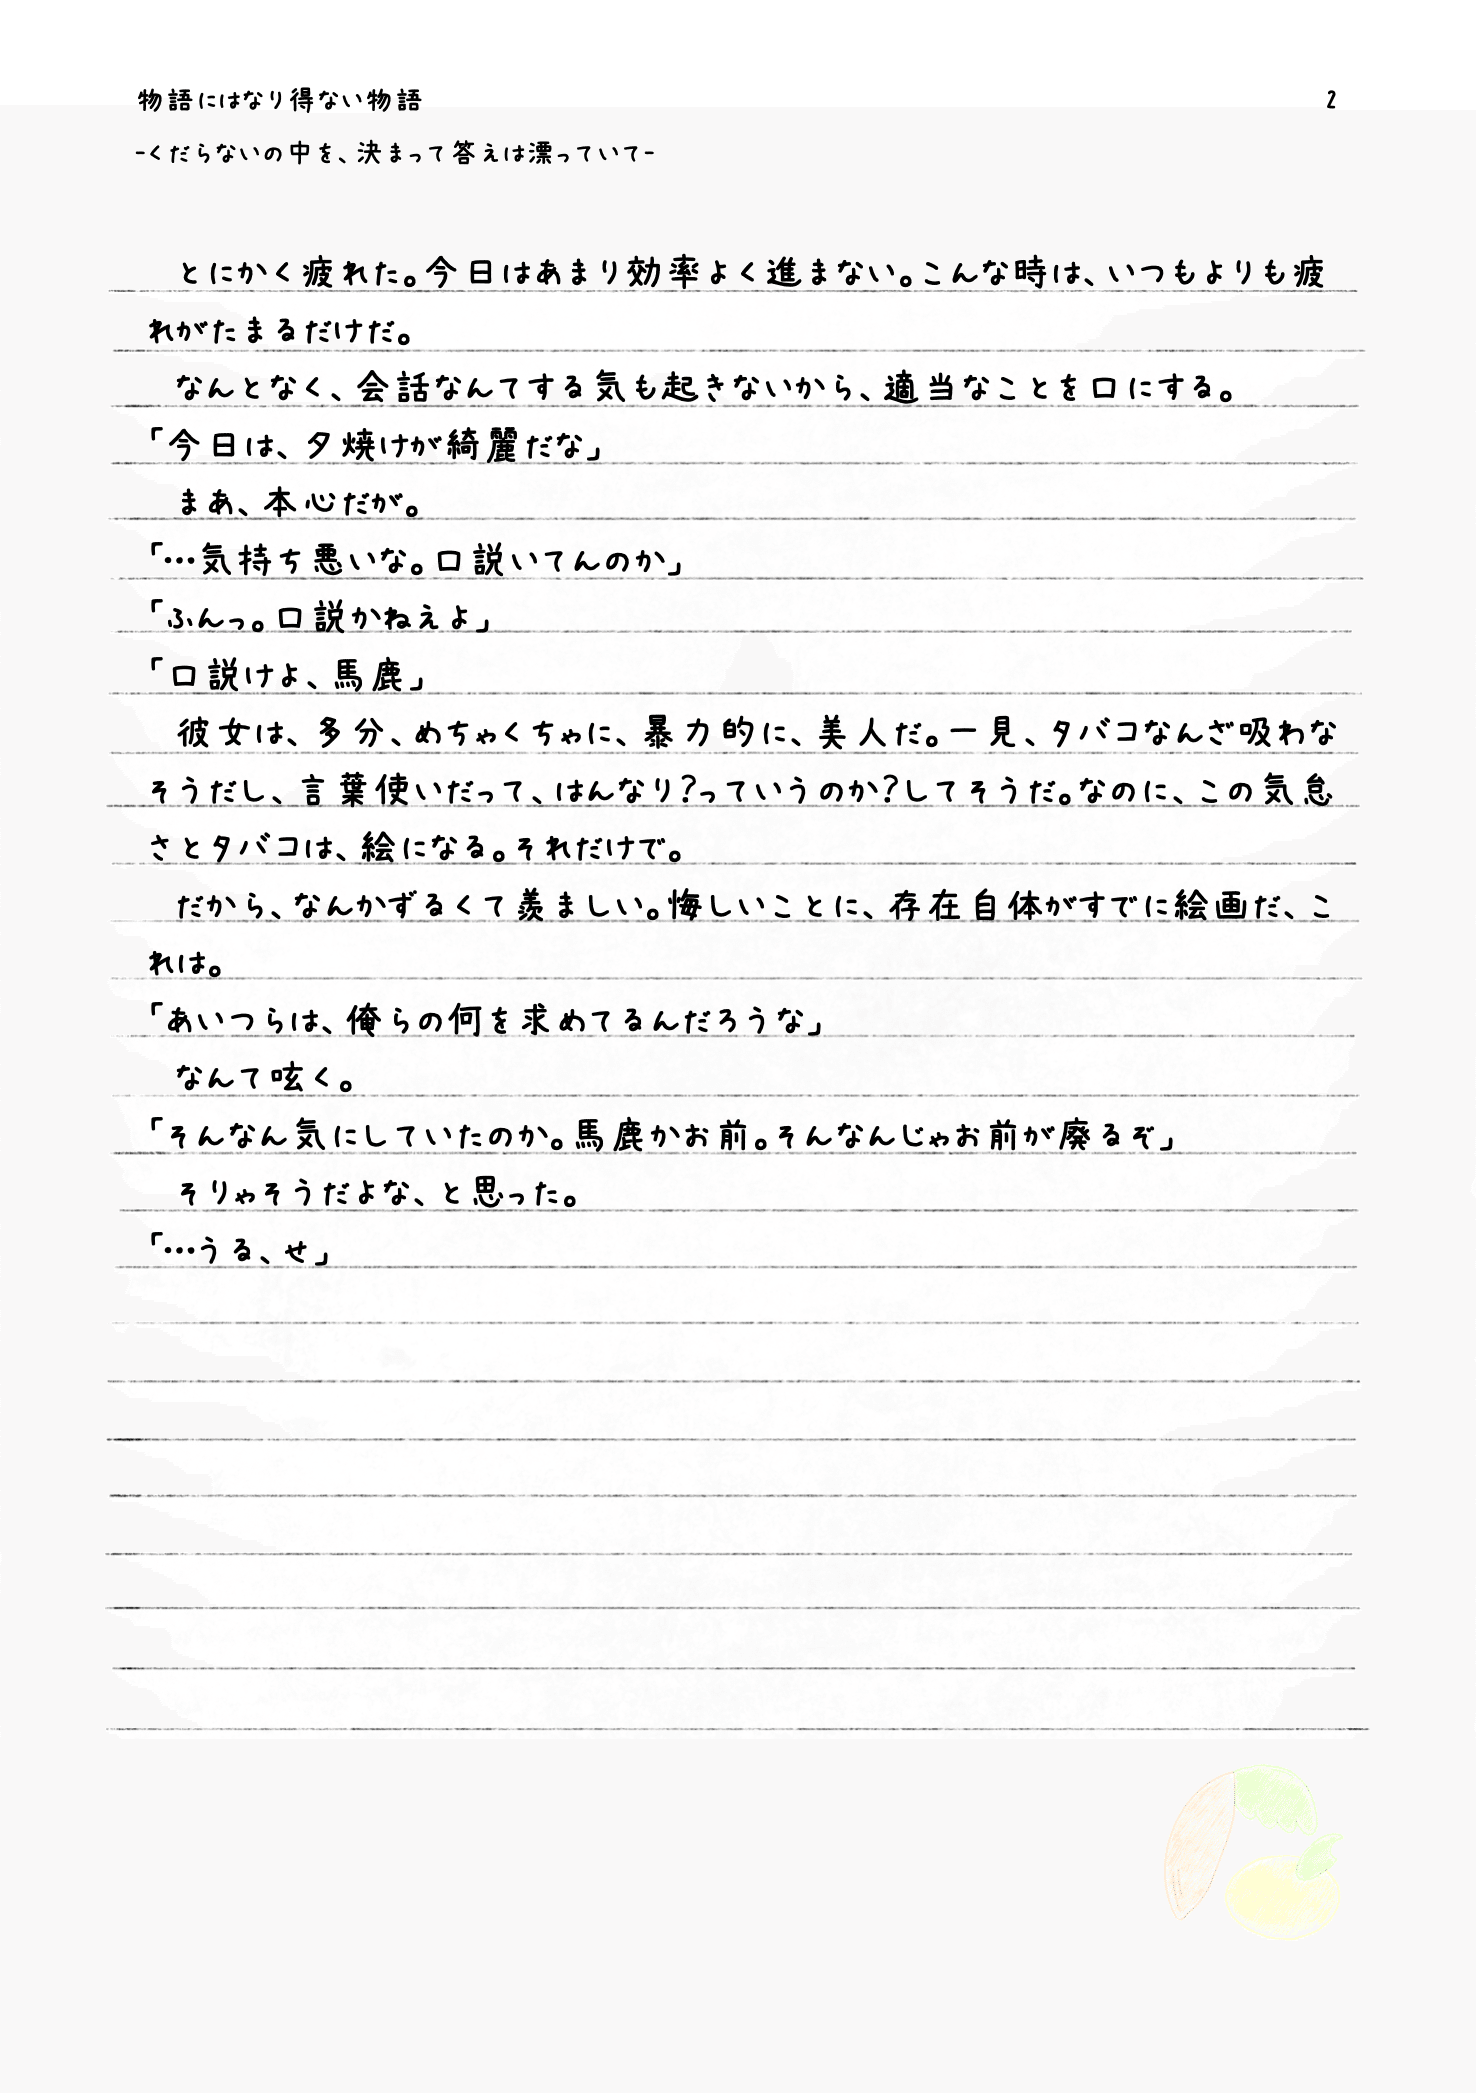 物語にはなり得ない物語
2
-くだらないの中を、決まって答えは漂っていて-
とにかく疲れた。今日はあまり効率よく進まない。こんな時は、いつもよりも疲
れがたまるだけだ。
なんとなく、会話なんてする気も起きないから、適当なことを口にする。
「今日は、夕焼けが綺麗だな」
まあ、本心だが。
「…気持ち悪いな。口説いてんのか」
「ふんっ。口説かねえよ」
「口説けよ、馬鹿」
彼女は、多分、めちゃくちゃに、暴力的に、美人だ。一見、タバコなんざ吸わな
そうだし、言葉使いだって、はんなり?っていうのか?してそうだ。なのに、この気怠
さとタバコは、絵になる。それだけで。
だから、なんかずるくて羨ましい。悔しいことに、存在自体がすでに絵画だ、こ
れは。
「あいつらは、俺らの何を求めてるんだろうな」
なんて呟く。
「そんなん気にしていたのか。馬鹿かお前。そんなんじゃお前が廃るぞ」
そりゃそうだよな、と思った。
「…うる、せ」